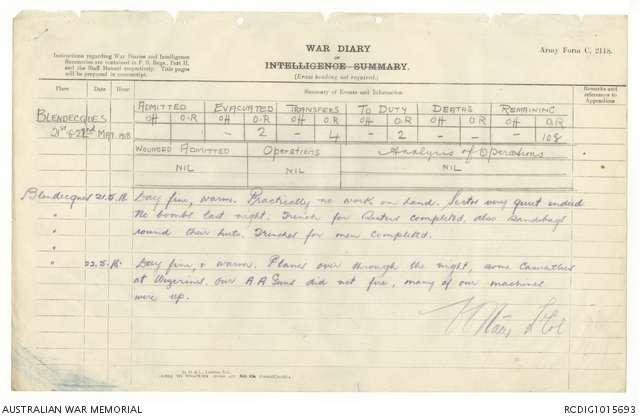 Instructions regarding War Diaries and Intelligence
Summaries are contained in F. S. Regs., Part II.
and the Staff Manual respectively. Title pages
will be prepared in manuscript.
WAR DIARY
OR
INTELLIGENCE SUMMARY.
(Erase heading not required.)
Army Form C. 2118.
Place Date Hour Summary of Events and Information Remarks and references to Appendices
BLENDECQUES
21st & 22nd May 1918
ADMITTED EVACUATED TRANSFERS TO DUTY DEATHS REMAINING
Off O.R Off O.R Off O.R Off O.R Off O.R Off O.R
1 - 2 - 4 - 2 - - 108
WOUNDED ADMITTED Operations Analysis of Operations
NIL NIL NIL
Blendecques 21.5.18 Day fine, warm. Practically no work on hand. Sector very quiet indeed
No bombs last night. Trench for Sisters completed, also sandbags
round their huts. Trenches for men completed.
" 22.5.18. Day fine, & warm. Planes over through the night, some casualties
at . Our A.A Guns did not fire, many of our machines
were up.
Lt Col
AUSTRALIAN WAR MEMORIAL
RCDIG1015693